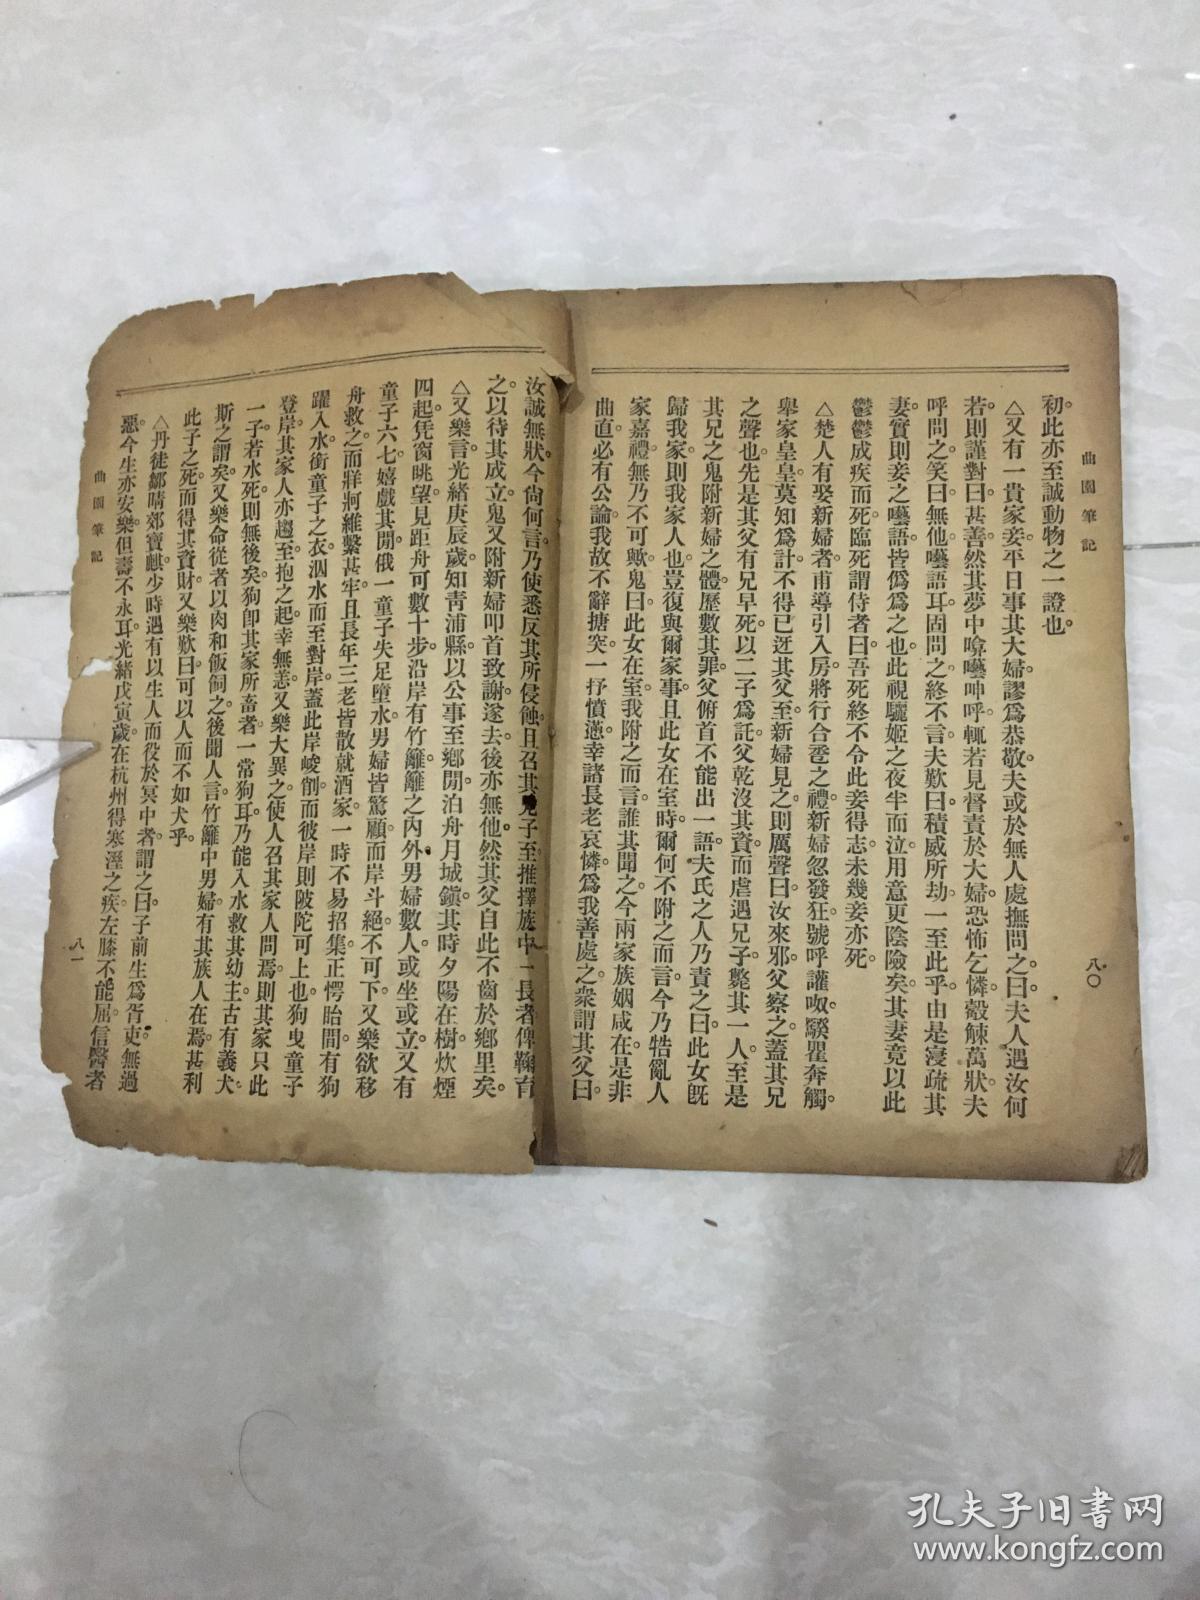 曲園筆記
八〇
初。此亦至誠動物之一證也。
△又有一貴家妾。平日事其大婦。謬爲恭敬。夫或於無人處撫問之。曰。夫人遇汝何
若。則謹對曰。甚善。然其夢中喰囈呻呼。輒若見督責於大婦。恐怖乞憐。觳觫萬狀。夫
呼問之。笑曰。無他。囈語耳。固問之。終不言。夫歎曰。積威所劫。一至此乎。由是寖疏其
妻。實則妾之囈語。皆僞爲之也。此視驪姬之夜半而泣。用意更陰險矣。其妻竟以此
鬱鬱成疾而死。臨死謂侍者曰。吾死終不令此妾得志。未幾妾亦死。
△楚人有娶新婦者。甫導引入房。將行合巹之禮。新婦忽發狂。號呼讙呶。騤瞿奔觸。
舉家皇皇。莫知爲計。不得已迓其父至。新婦見之。則厲聲曰。汝來邪。父察之。蓋其兄
之聲也。先是其父有兄早死。以二子爲託。父乾沒其資。而虐遇兄子。斃其一人。至是
其兄之鬼附新婦之體。歷數其罪。父俯首不能出一語。夫氏之人乃責之曰。此女既
歸我家。則我家人也。豈復與爾家事。且此女在室時。爾何不附之而言。今乃牿亂人
家嘉禮。無乃不可歟。鬼曰。此女在室。我附之而言。誰其聞之。今兩家族姻咸在。是非
曲直。必有公論。我故不辭搪突。一抒憤懣。幸諸長老哀憐。爲我善處之。衆謂其父曰。
汝誠無狀。今尙何言。乃使悉反其所侵蝕。且召其兄子至。推擇族中一長者。俾鞠育
之。以待其成立。鬼又附新婦叩首致謝。遂去。後亦無他。然其父自此不齒於鄉里矣。
△又樂言光緒庚辰歲。知青浦縣。以公事至鄉閒。泊舟月城鎮。其時夕陽在樹。炊煙
四起。凭窗眺望。見距舟可數十步。沿岸有竹籬。籬之內外。男婦數人。或坐或立。又有
童子六七。嬉戲其閒。俄一童子失足墮水。男婦皆驚顧。而岸斗絕不可下。又樂欲移
舟救之。而牂牁維繫甚牢。且長年三老皆散就酒家。一時不易招集。正愕眙間。有狗
躍入水。銜童子之衣。泅水而至對岸。蓋此岸峻削。而彼岸則陂陀可上也。狗曳童子
登岸。其家人亦趨至。抱之起。幸無恙。又樂大異之。使人召其家人問焉。則其家只此
一子。若水死則無後矣。狗卽其家所畜者。一常狗耳。乃能入水救其幼主。古有義犬。
斯之謂矣。又樂命從者以肉和飯飼之。後聞人言。竹籬中男婦。有其族人在焉。甚利
此子之死。而得其資財。又樂歎曰。可以人而不如犬乎。
△丹徒鄒晴郊寶麒。少時遇有以生人而役於冥中者。謂之曰。子前生爲胥吏。無過
惡。今生亦安樂。但壽不永耳。光緒戊寅歲。在杭州得寒溼之疾。左膝不能屈信。醫者
曲園筆記
八一
孔夫子旧书网
www.kongfz.com